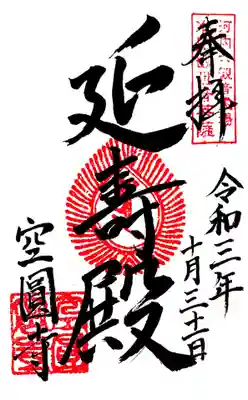 奉拝
延壽殿
令和三年
十月三十一日
空圓寺